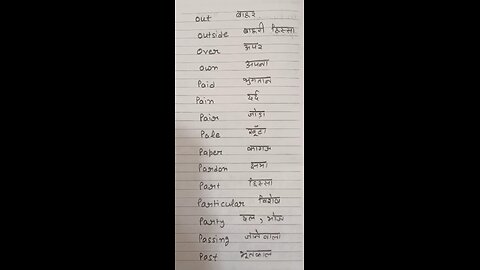 out बाहर
outside बाहरी हिस्सा
over ऊपर
own अपना
Paid भुगतान
Pain दर्द
Pair जोडा
Pole खूँटा
Paper कागज
Pardon क्षमा
Part हिस्सा
Particular विशेष
Party दल, भोज
Passing जाने वाला
Past भूतकाल